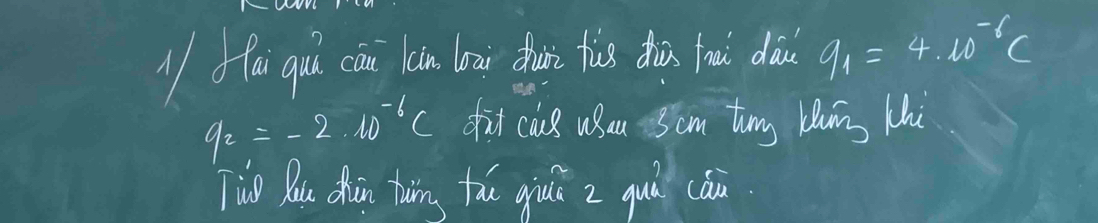 1/ Hai quả cầu kim loại được tích điện trái dấu q₁ = 4.10⁻⁶ C
q₂ = -2.10⁻⁶ C đặt cách nhau 3 cm trong không khí
Tính lực điện tương tác giữa 2 quả cầu.